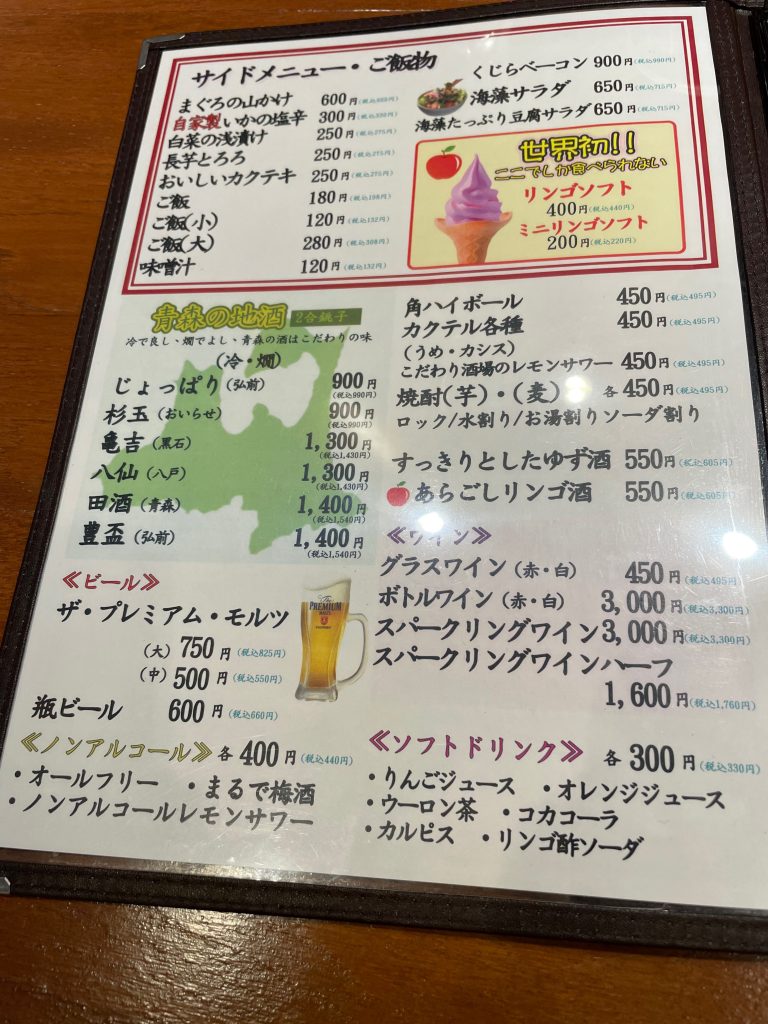 サイドメニュー・ご飯物
まぐろの山かけ 600円(税込660円)
自家製いかの塩辛 300円(税込330円)
白菜の浅漬け 250円(税込275円)
長芋とろろ 250円(税込275円)
おいしいカクテキ 250円(税込275円)
ご飯 180円(税込198円)
ご飯(小) 120円(税込132円)
ご飯(大) 280円(税込308円)
味噌汁 120円(税込132円)
くじらベーコン 900円(税込990円)
海藻サラダ 650円(税込715円)
海藻たっぷり豆腐サラダ 650円(税込715円)
世界初!!
ここでしか食べられない
リンゴソフト
400円(税込440円)
ミニリンゴソフト
200円(税込220円)
青森の地酒 2合銚子
冷で良し、燗でよし、青森の酒はこだわりの味
(冷・燗)
じょっぱり(弘前) 900円
(税込990円)
杉玉(おいらせ) 900円
(税込990円)
亀吉(黒石) 1,300円
(税込1,430円)
八仙(八戸) 1,300円
(税込1,430円)
田酒(青森) 1,400円
(税込1,540円)
豊盃(弘前) 1,400円
(税込1,540円)
≪ビール≫
ザ・プレミアム・モルツ
(大) 750円(税込825円)
(中) 500円(税込550円)
瓶ビール 600円(税込660円)
The
PREMIUM
MALT'S
≪ノンアルコール≫各400円(税込440円)
・オールフリー ・まるで梅酒
・ノンアルコールレモンサワー
角ハイボール 450円(税込495円)
カクテル各種 450円(税込495円)
(うめ・カシス)
こだわり酒場のレモンサワー 450円(税込495円)
焼酎(芋)・(麦) 各450円(税込495円)
ロック/水割り/お湯割りソーダ割り
すっきりとしたゆず酒 550円(税込605円)
あらごしリンゴ酒 550円(税込605円)
≪ワイン≫
グラスワイン(赤・白) 450円(税込495円)
ボトルワイン(赤・白) 3,000円(税込3,300円)
スパークリングワイン3,000円(税込3,300円)
スパークリングワインハーフ
1,600円(税込1,760円)
≪ソフトドリンク≫ 各300円(税込330円)
・りんごジュース ・オレンジジュース
・ウーロン茶 ・コカコーラ
・カルピス ・リンゴ酢ソーダ